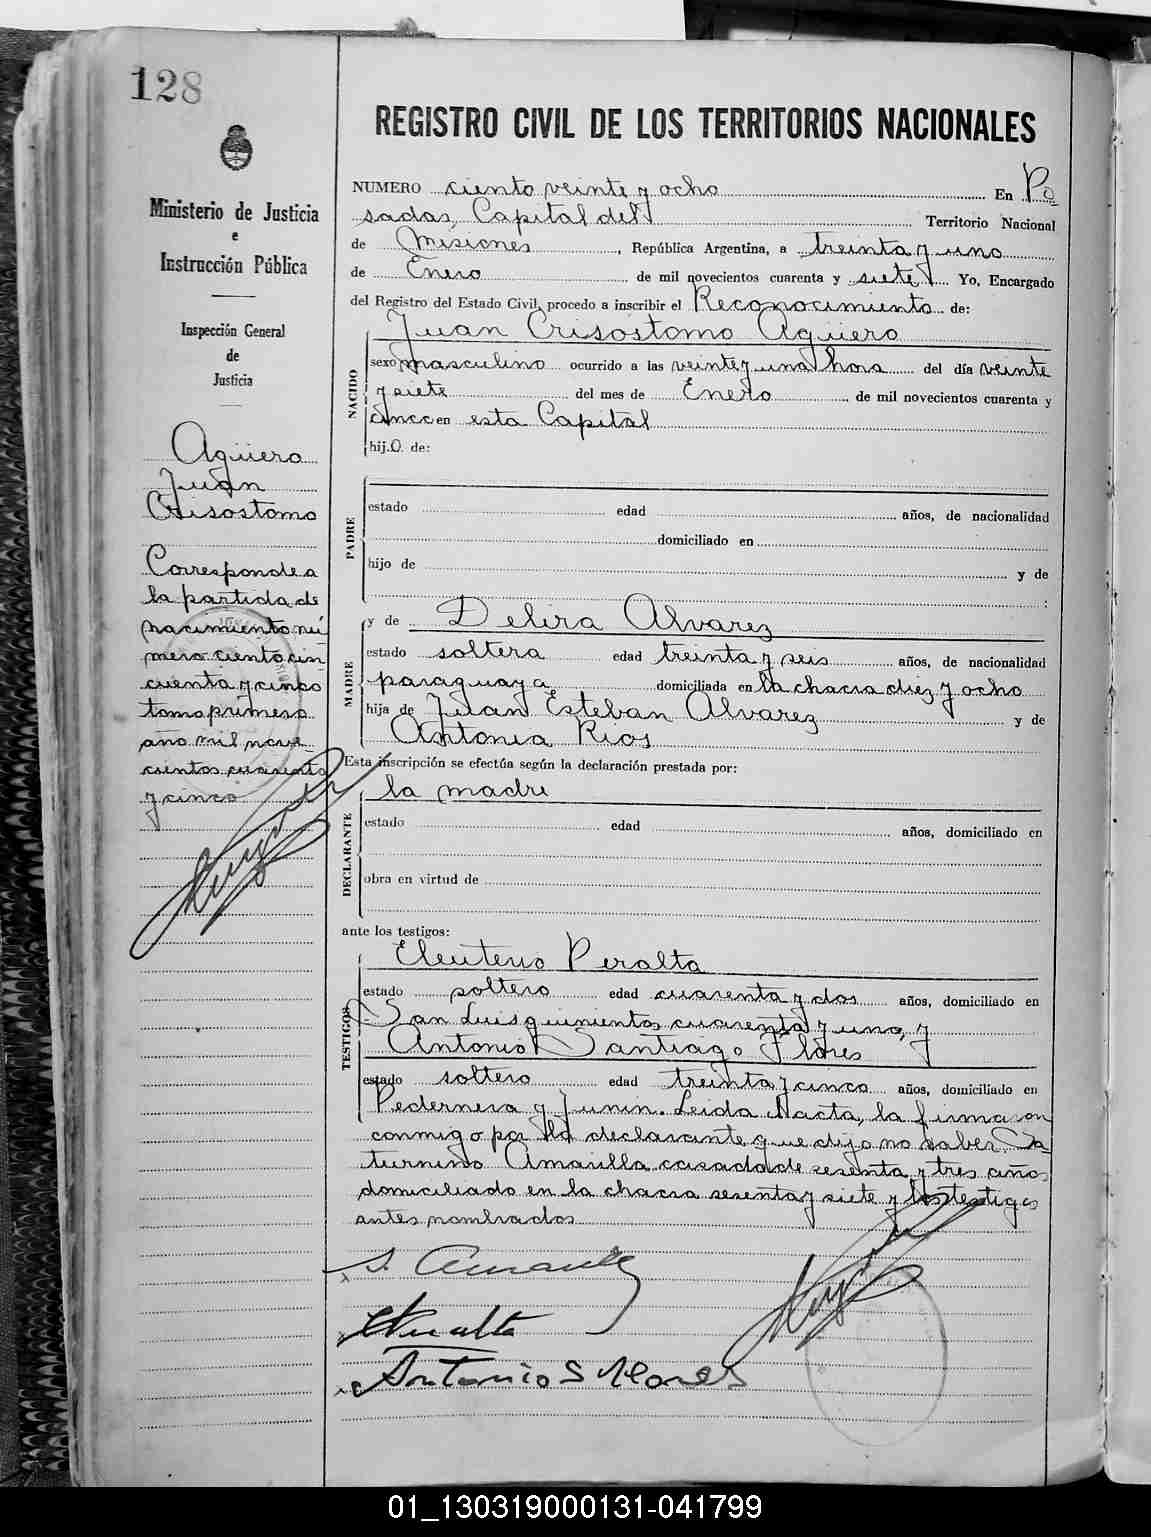 128
REGISTRO CIVIL DE LOS TERRITORIOS NACIONALES
Ministerio de Justicia
e
Instrucción Pública
Inspección General
de
Justicia
Agüero
Juan
Crisostomo
Corresponde a
la partida de
nacimiento nú
mero ciento cin
cuenta y cinco
tomo primero
año mil nove_
cientos cuarenta
y cinco
NUMERO ciento veinte y ocho En Po_
sadas, Capital del Territorio Nacional
de Misiones, República Argentina, a treinta y uno
de Enero de mil novecientos cuarenta y siete Yo, Encargado
del Registro del Estado Civil, procedo a inscribir el Reconocimiento de:
Juan Crisostomo Agüero
NACIDO
sexo masculino ocurrido a las veinte y una hora del día veinte
y siete del mes de Enero de mil novecientos cuarenta y
cinco en esta Capital
hij.o. de:
PADRE
estado edad años, de nacionalidad
domiciliado en
hijo de y de
:
MADRE
y de Delira Alvarez
estado soltera edad treinta y seis años, de nacionalidad
paraguaya domiciliada en la chacra diez y ocho
hija de Juan Esteban Alvarez y de
Antonia Rios
Esta inscripción se efectúa según la declaración prestada por:
la madre
DECLARANTE
estado edad años, domiciliado en
obra en virtud de
ante los testigos:
TESTIGOS
Eleuterio Peralta
estado soltero edad cuarenta y dos años, domiciliado en
San Luis quinientos cuarenta y uno, y
Antonio Santiago Flores
estado soltero edad treinta y cinco años, domiciliado en
Pedernera y Junin. Leida el acta, la firmaron
conmigo por la declarante que dijo no saber Sa_
turnino Amarilla casado de sesenta y tres años
domiciliado en la chacra sesenta y siete y los testigos
antes nombrados
S. Amarilla
EPeralta
Antonio S Flores
01_130319000131-041799